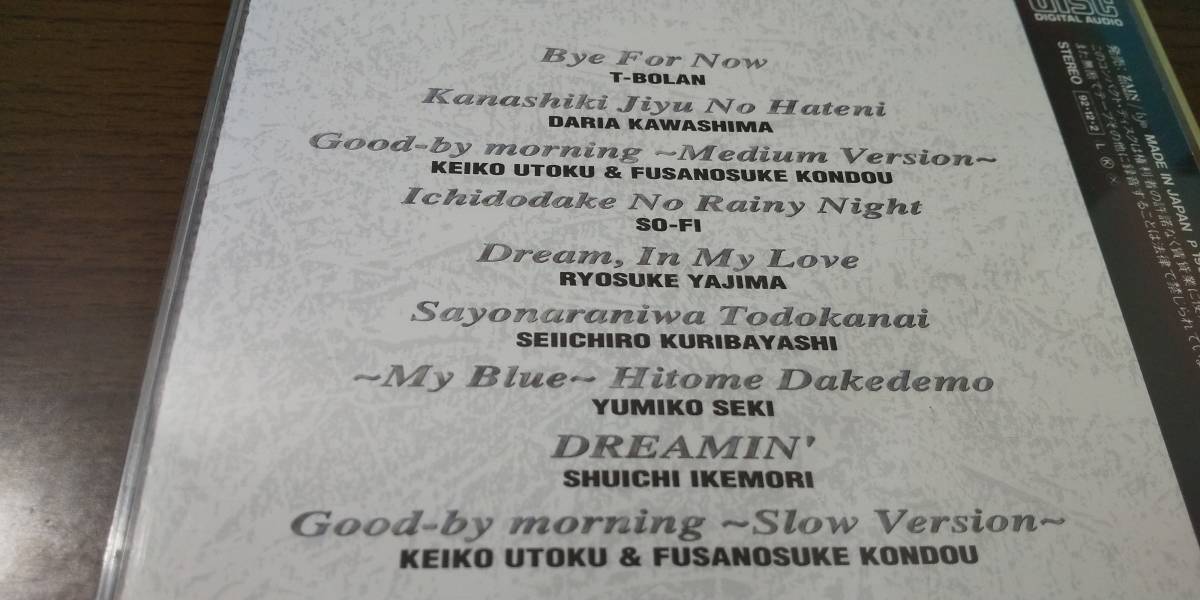 Bye For Now
T-BOLAN
Kanashiki Jiyu No Hateni
DARIA KAWASHIMA
Good-by morning ~Medium Version~
KEIKO UTOKU & FUSANOSUKE KONDOU
Ichidodake No Rainy Night
SO-FI
Dream, In My Love
RYOSUKE YAJIMA
Sayonaraniwa Todokanai
SEIICHIRO KURIBAYASHI
~My Blue~ Hitome Dakedemo
YUMIKO SEKI
DREAMIN'
SHUICHI IKEMORI
Good-by morning ~Slow Version~
KEIKO UTOKU & FUSANOSUKE KONDOU
DISC
DIGITAL AUDIO
STEREO 92·12·2
MADE IN JAPAN